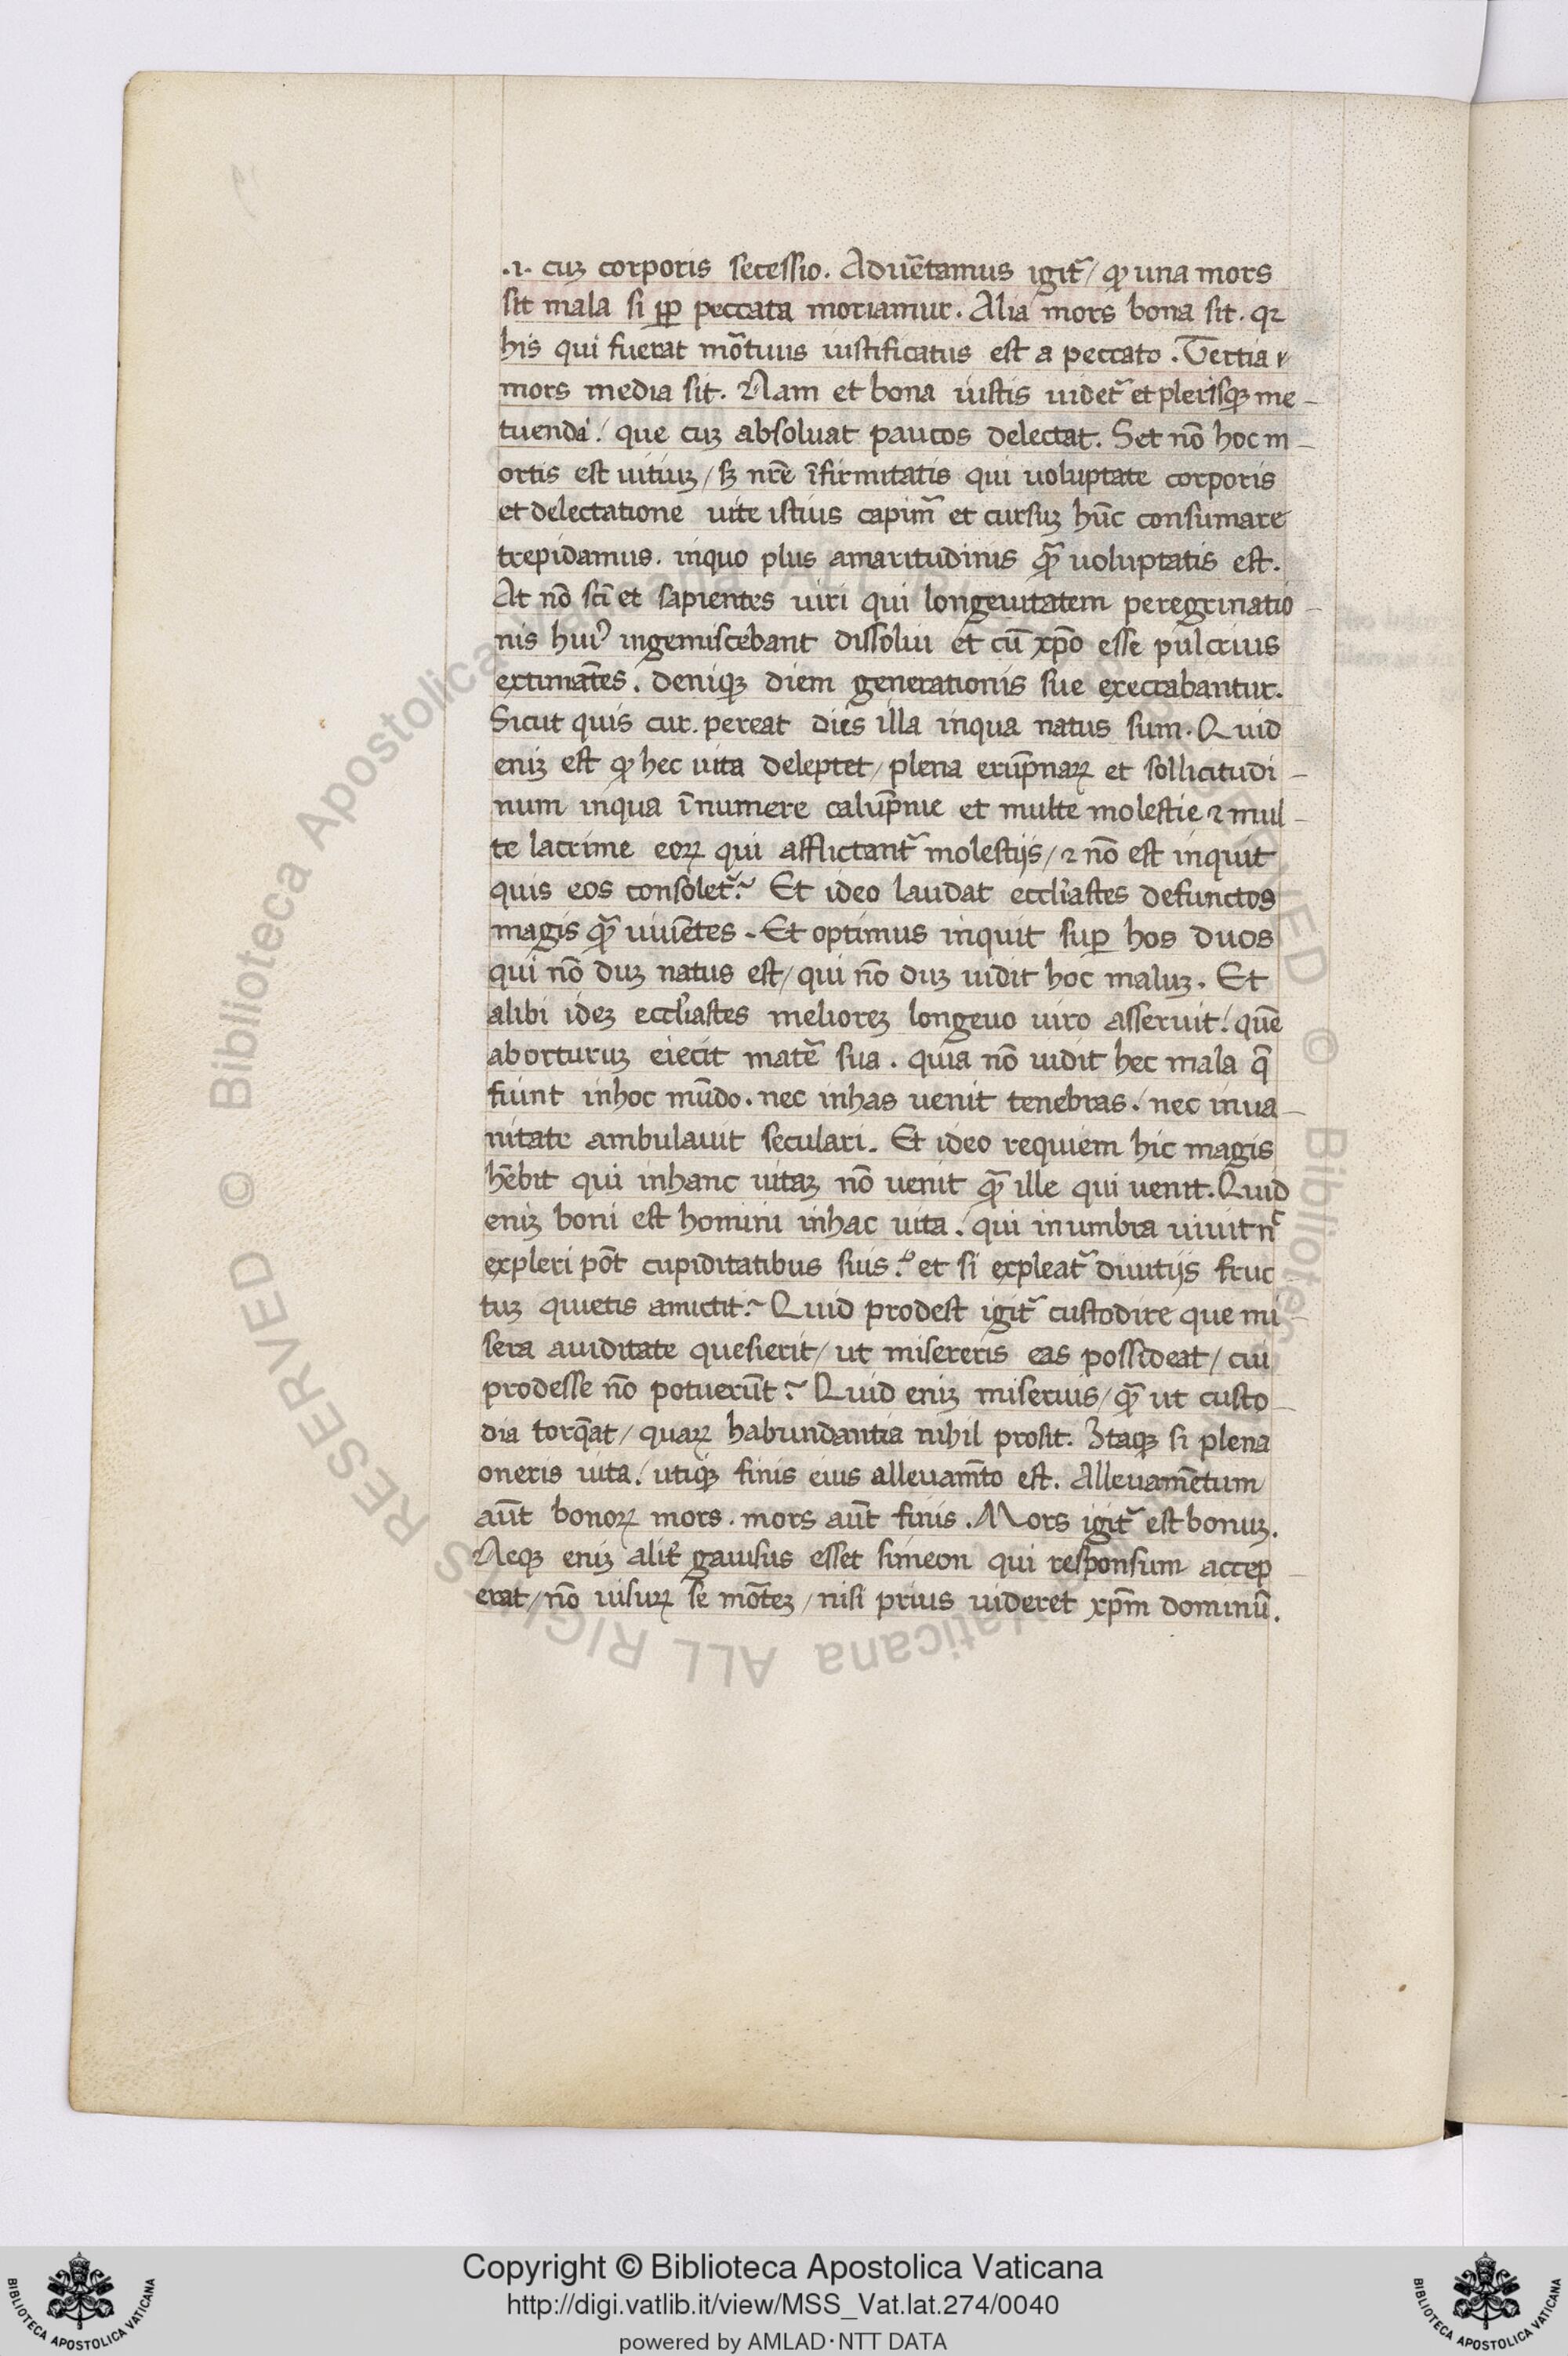 .i. cuꝫ corporis secessio. Aduẽtamus igit᷑/ ꝙ una mors
sit mala si ꝓp peccata moriamur. Alia mors bona sit. qꝛ
his qui fuerat mõtuus iustificatus est a peccato. Tertia
mors media sit. Nam et bona iustis uidet᷑ et plerisqꝫ me-
tuenda/ que cuꝫ absoluat paucos delectat. Set nõ hoc m-
ortis est uitiuꝫ/ sꝫ nrẽ ĩfirmitatis qui uoluptate corporis
et delectatione uite istius capim᷑ et cursuꝫ hũc consumare
trepidamus. inquo plus amaritudinis qᷓ uoluptatis est.
At nõ scĩ et sapientes uiri qui longeuitatem peregrinatio-
nis huiꝰ ingemiscebant dissolui et cũ xp̃o esse pulcrius
extimãtes. deniqꝫ diem generationis sue execrabantur.
Sicut quis cur. pereat dies illa inqua natus sum. Quid
eniꝫ est ꝙ hec uita deleptet/ plena erũpnaꝝ et sollicitudi-
num inqua ĩnumere calũpnie et multe molestie ⁊ mul-
te lacrime eoꝝ qui afflictant᷑ molestijs/ ⁊ nõ est inquit
quis eos consolet᷑? Et ideo laudat eccl̃iastes defunctos
magis qᷓ uiuẽtes. Et optimus inquit suꝑ hos duos
qui nõ duꝫ natus est/ qui nõ duꝫ uidit hoc maluꝫ. Et
alibi ideꝫ eccl̃iastes melioreꝫ longeuo uiro asseruit/ quẽ
aborturuꝫ eiecit matẽ sua. quia nõ uidit hec mala q̃
fiunt inhoc mũdo. nec inhas uenit tenebras/ nec inua-
nitate ambulauit seculari. Et ideo requiem hic magis
hẽbit qui inhanc uitaꝫ nõ uenit qᷓ ille qui uenit. Quid
eniꝫ boni est homini inhac uita/ qui inumbra uiuit nͨ
expleri põt cupiditatibus suis? et si expleat᷑ diuitijs fruc-
tuꝫ quietis amictit? Quid prodest igit᷑ custodire que mi-
sera auiditate quesierit/ ut misereris eas possideat/ cui
prodesse nõ potuerũt? Quid eniꝫ miserius/ qᷓ ut custo-
dia torq̃at/ quaꝝ habundantia nihil prosit. Itaqꝫ si plena
oneris uita/ utiqꝫ finis eius alleuam̃to est. Alleuamẽtum
aũt bonoꝝ mors. mors aũt finis. Mors igit᷑ est bonuꝫ.
Neqꝫ eniꝫ alit̃ gauisus esset simeon qui responsum accep-
erat/ nõ uisuꝝ se mõteꝫ/ nisi prius uideret xp̃m dominũ.
Copyright © Biblioteca Apostolica Vaticana
http://digi.vatlib.it/view/MSS_Vat.lat.274/0040
powered by AMLAD·NTT DATA